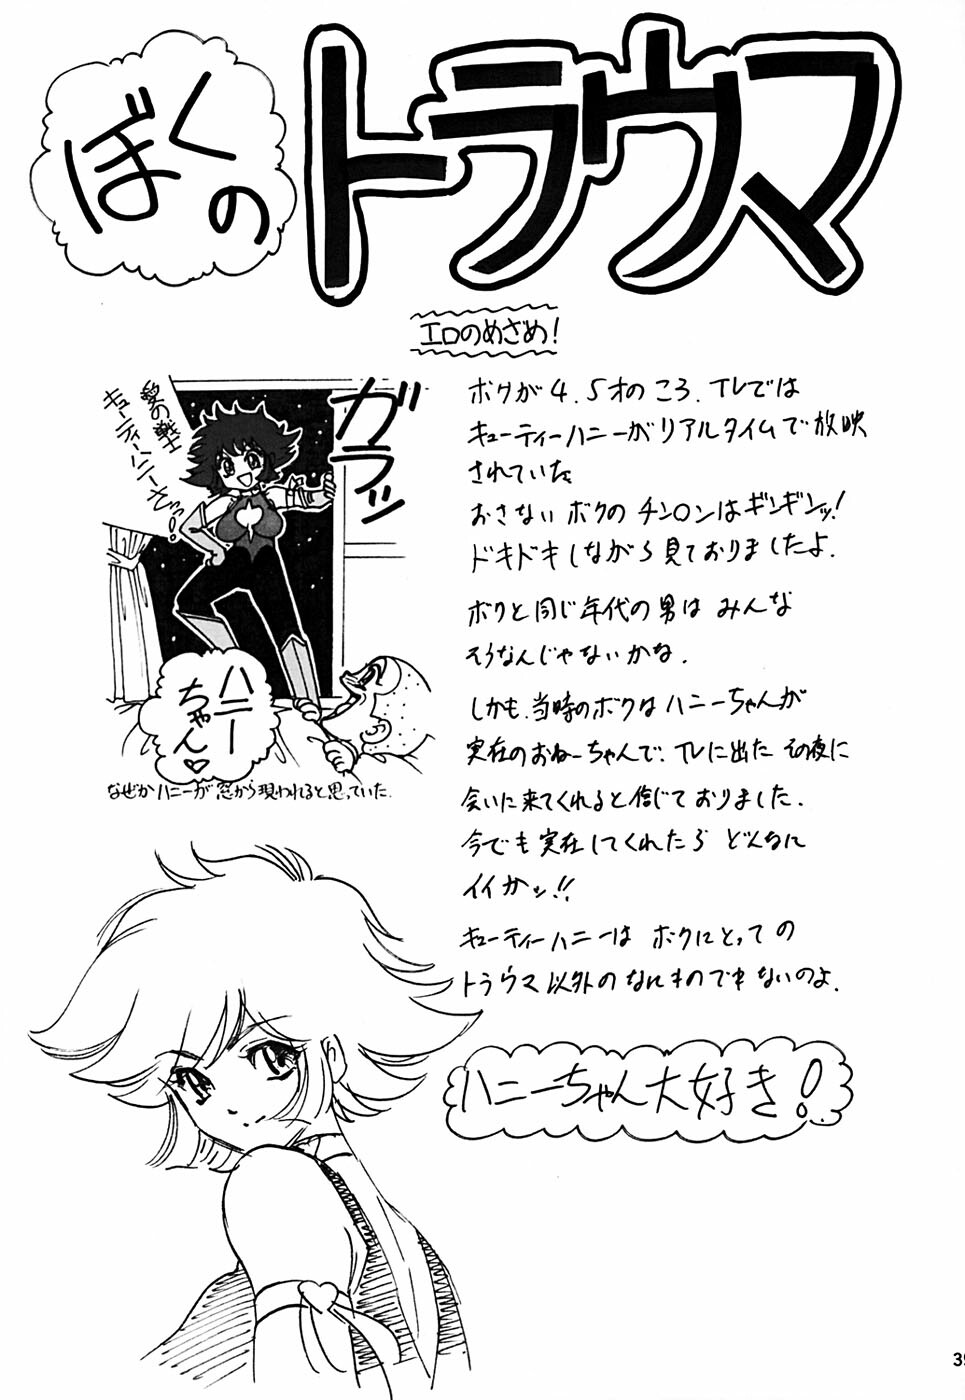 ぼくの
トラウマ
エロのめざめ!
愛の戦士
キューティーハニーさっ!
ガラッ
ハニーちゃん♡
なぜかハニーが窓から現われると思っていた.
ボクが4.5才のころ.TVでは
キューティーハニーがリアルタイムで放映
されていた
おさないボクのチン〇ンはギンギンッ!
ドキドキしながら見ておりましたよ.
ボクと同じ年代の男はみんな
そうなんじゃないかな.
しかも.当時のボクはハニーちゃんが
実在のおねーちゃんで.TVに出たその夜に
会いに来てくれると信じておりました.
今でも実在してくれたらどんなに
イイかッ!!
キューティーハニーはボクにとっての
トラウマ以外のなにものでもないのよ.
ハニーちゃん大好き!